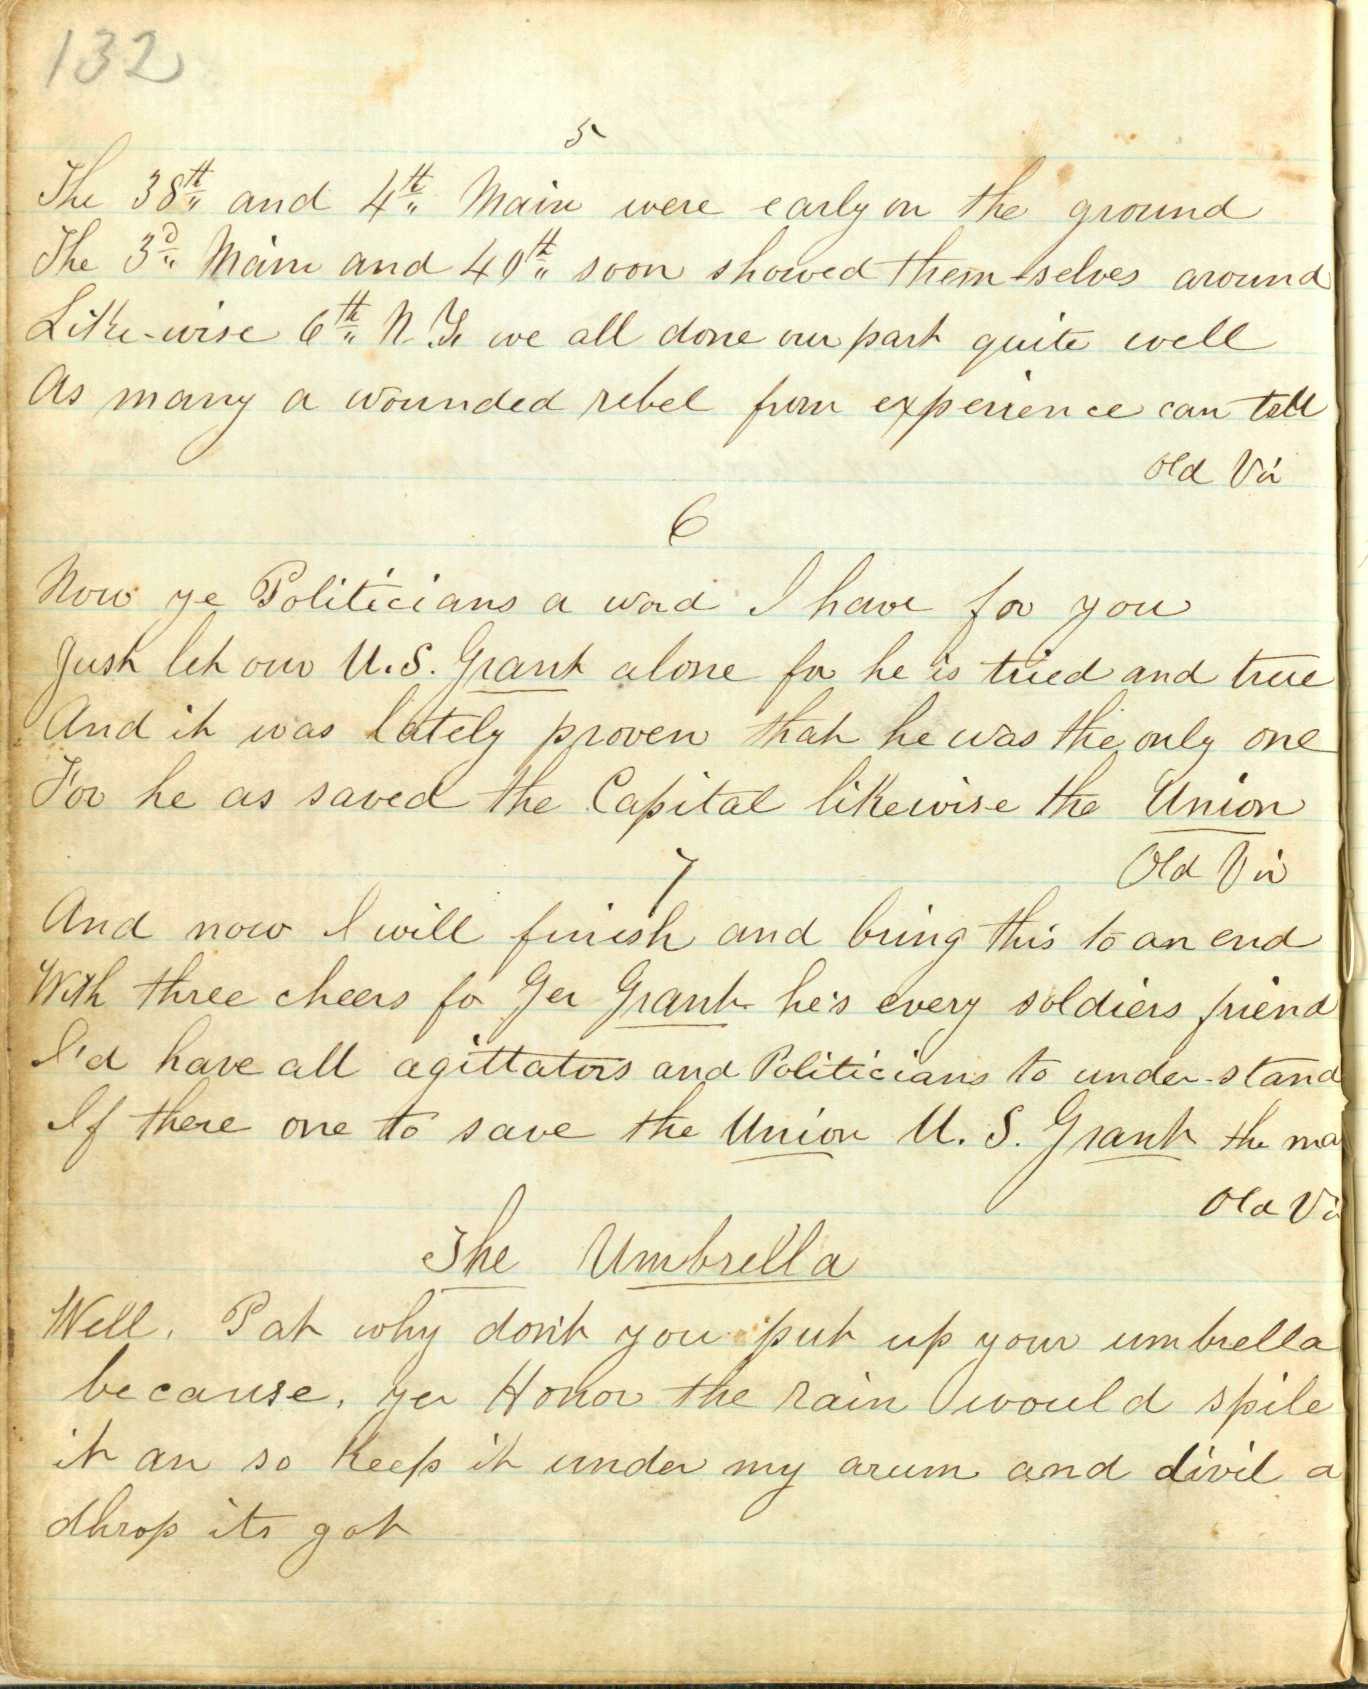 132
5
The 38th and 4th Main were early on the ground
The 3d Main and 40th soon showed them-selves around
Like-wise 6th N. Y. we all done our part quite well
As many a wounded rebel from experience can tell
Old Va
6
Now ye Politicians a word I have for you
Just let our U.S. Grant alone for he is tried and true
And it was lately proven that he was the only one
For he as saved the Capital likewise the Union
7
Old Va
And now I will finish and bring this to an end
With three cheers fo Gen Grant he's every soldiers friend
I'd have all agittators and Politicians to under-stand
If there one to save the Union U. S. Grant the ma
Old Va
The Umbrella
Well. Pat why don't you put up your umbrella
because, yer Honor the rain would spile
it an so keep it under my arum and divil a
dhrop its got